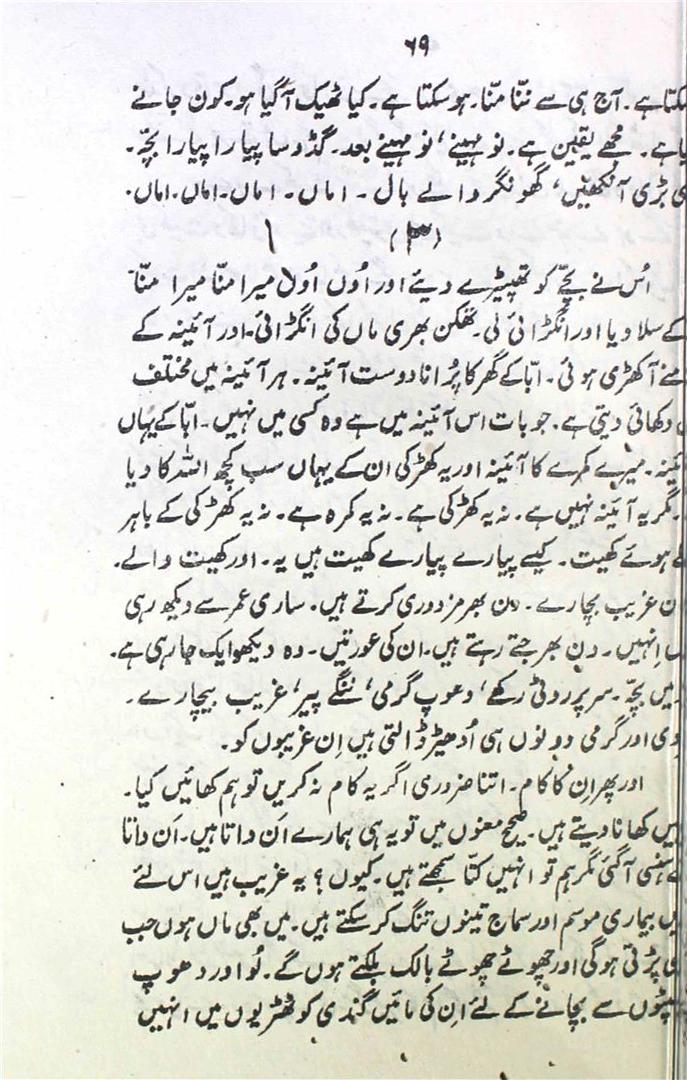 ۶۹
سکتا ہے۔ آج ہی سے ننّا منّا۔ ہو سکتا ہے۔ کیا ٹھیک آ گیا ہو۔ کون جانے
ہے۔ مجھے یقین ہے۔ نو مہینے، نو مہینے بعد۔ گڈو سا پیارا پیارا بچّہ۔
بڑی آنکھیں، گھونگر والے بال۔ اماں۔ اماں۔ اماں۔ اماں۔
(۳)
اُس نے بچّے کو تھپیڑے دیئے اور اُوں اُوں لا میرا منّا میرا منّا
کے سلا دیا اور انگڑائی لی۔ تھکن بھری ماں کی انگڑائی۔ اور آئینہ کے
آ کھڑی ہوئی۔ ابّا کے گھر کا پُرانا دوست آئینہ۔ ہر آئینہ میں مختلف
دکھائی دیتی ہے۔ جو بات اس آئینہ میں ہے وہ کسی میں نہیں۔ ابّا کے یہاں
میرے کمرے کا آئینہ اور یہ کھڑکی ان کے یہاں سب کچھ اللہ کا دیا
مگر یہ آئینہ نہیں ہے۔ نہ یہ کھڑکی ہے۔ نہ یہ کمرہ ہے۔ نہ یہ کھڑکی کے باہر
ہوئے کھیت۔ کیسے پیارے پیارے کھیت ہیں یہ۔ اور کھیت والے۔
غریب بچارے۔ دن بھر مزدوری کرتے ہیں۔ ساری عمر سے دیکھ رہی
اِنہیں۔ دن بھر جتے رہتے ہیں۔ ان کی عورتیں۔ وہ دیکھو ایک جا رہی ہے۔
میں بچّہ۔ سر پر روٹی رکھے، دھوپ گرمی، ننگے پیر، غریب بیچارے۔
اور گرمی دونوں ہی اُدھیڑ ڈالتی ہیں اِن غریبوں کو۔
اور پھر اِن کا کام۔ اتنا ضروری اگر یہ کام نہ کریں تو ہم کھائیں کیا۔
کھانا دیتے ہیں۔ صحیح معنوں میں تو یہ ہی ہمارے اَن داتا ہیں۔ اَن داتا
ہنسی آ گئی مگر ہم تو انہیں کتّا سمجھتے ہیں۔ کیوں؟ یہ غریب ہیں اس لئے
بیماری موسم اور سماج تینوں تنگ کر سکتے ہیں۔ میں بھی ماں ہوں جب
پڑتی ہوگی اور چھوٹے چھوٹے بالک بلکتے ہوں گے۔ لُو اور دھوپ
سے بچانے کے لئے اِن کی مائیں گندی کوٹھڑیوں میں انہیں